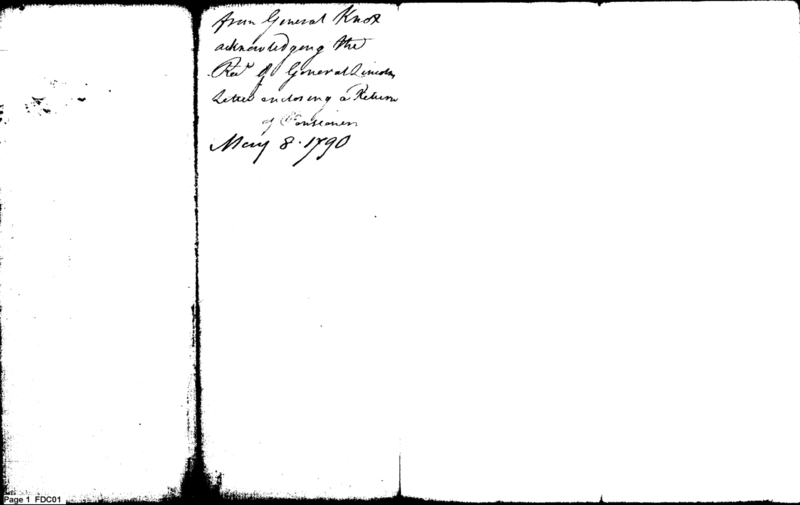 from General Knox
acknowledging the
Rec.t of General Lincolns
Letter enclosing a Return
of Pensioners
May 8. 1790
Page 1 FDC01